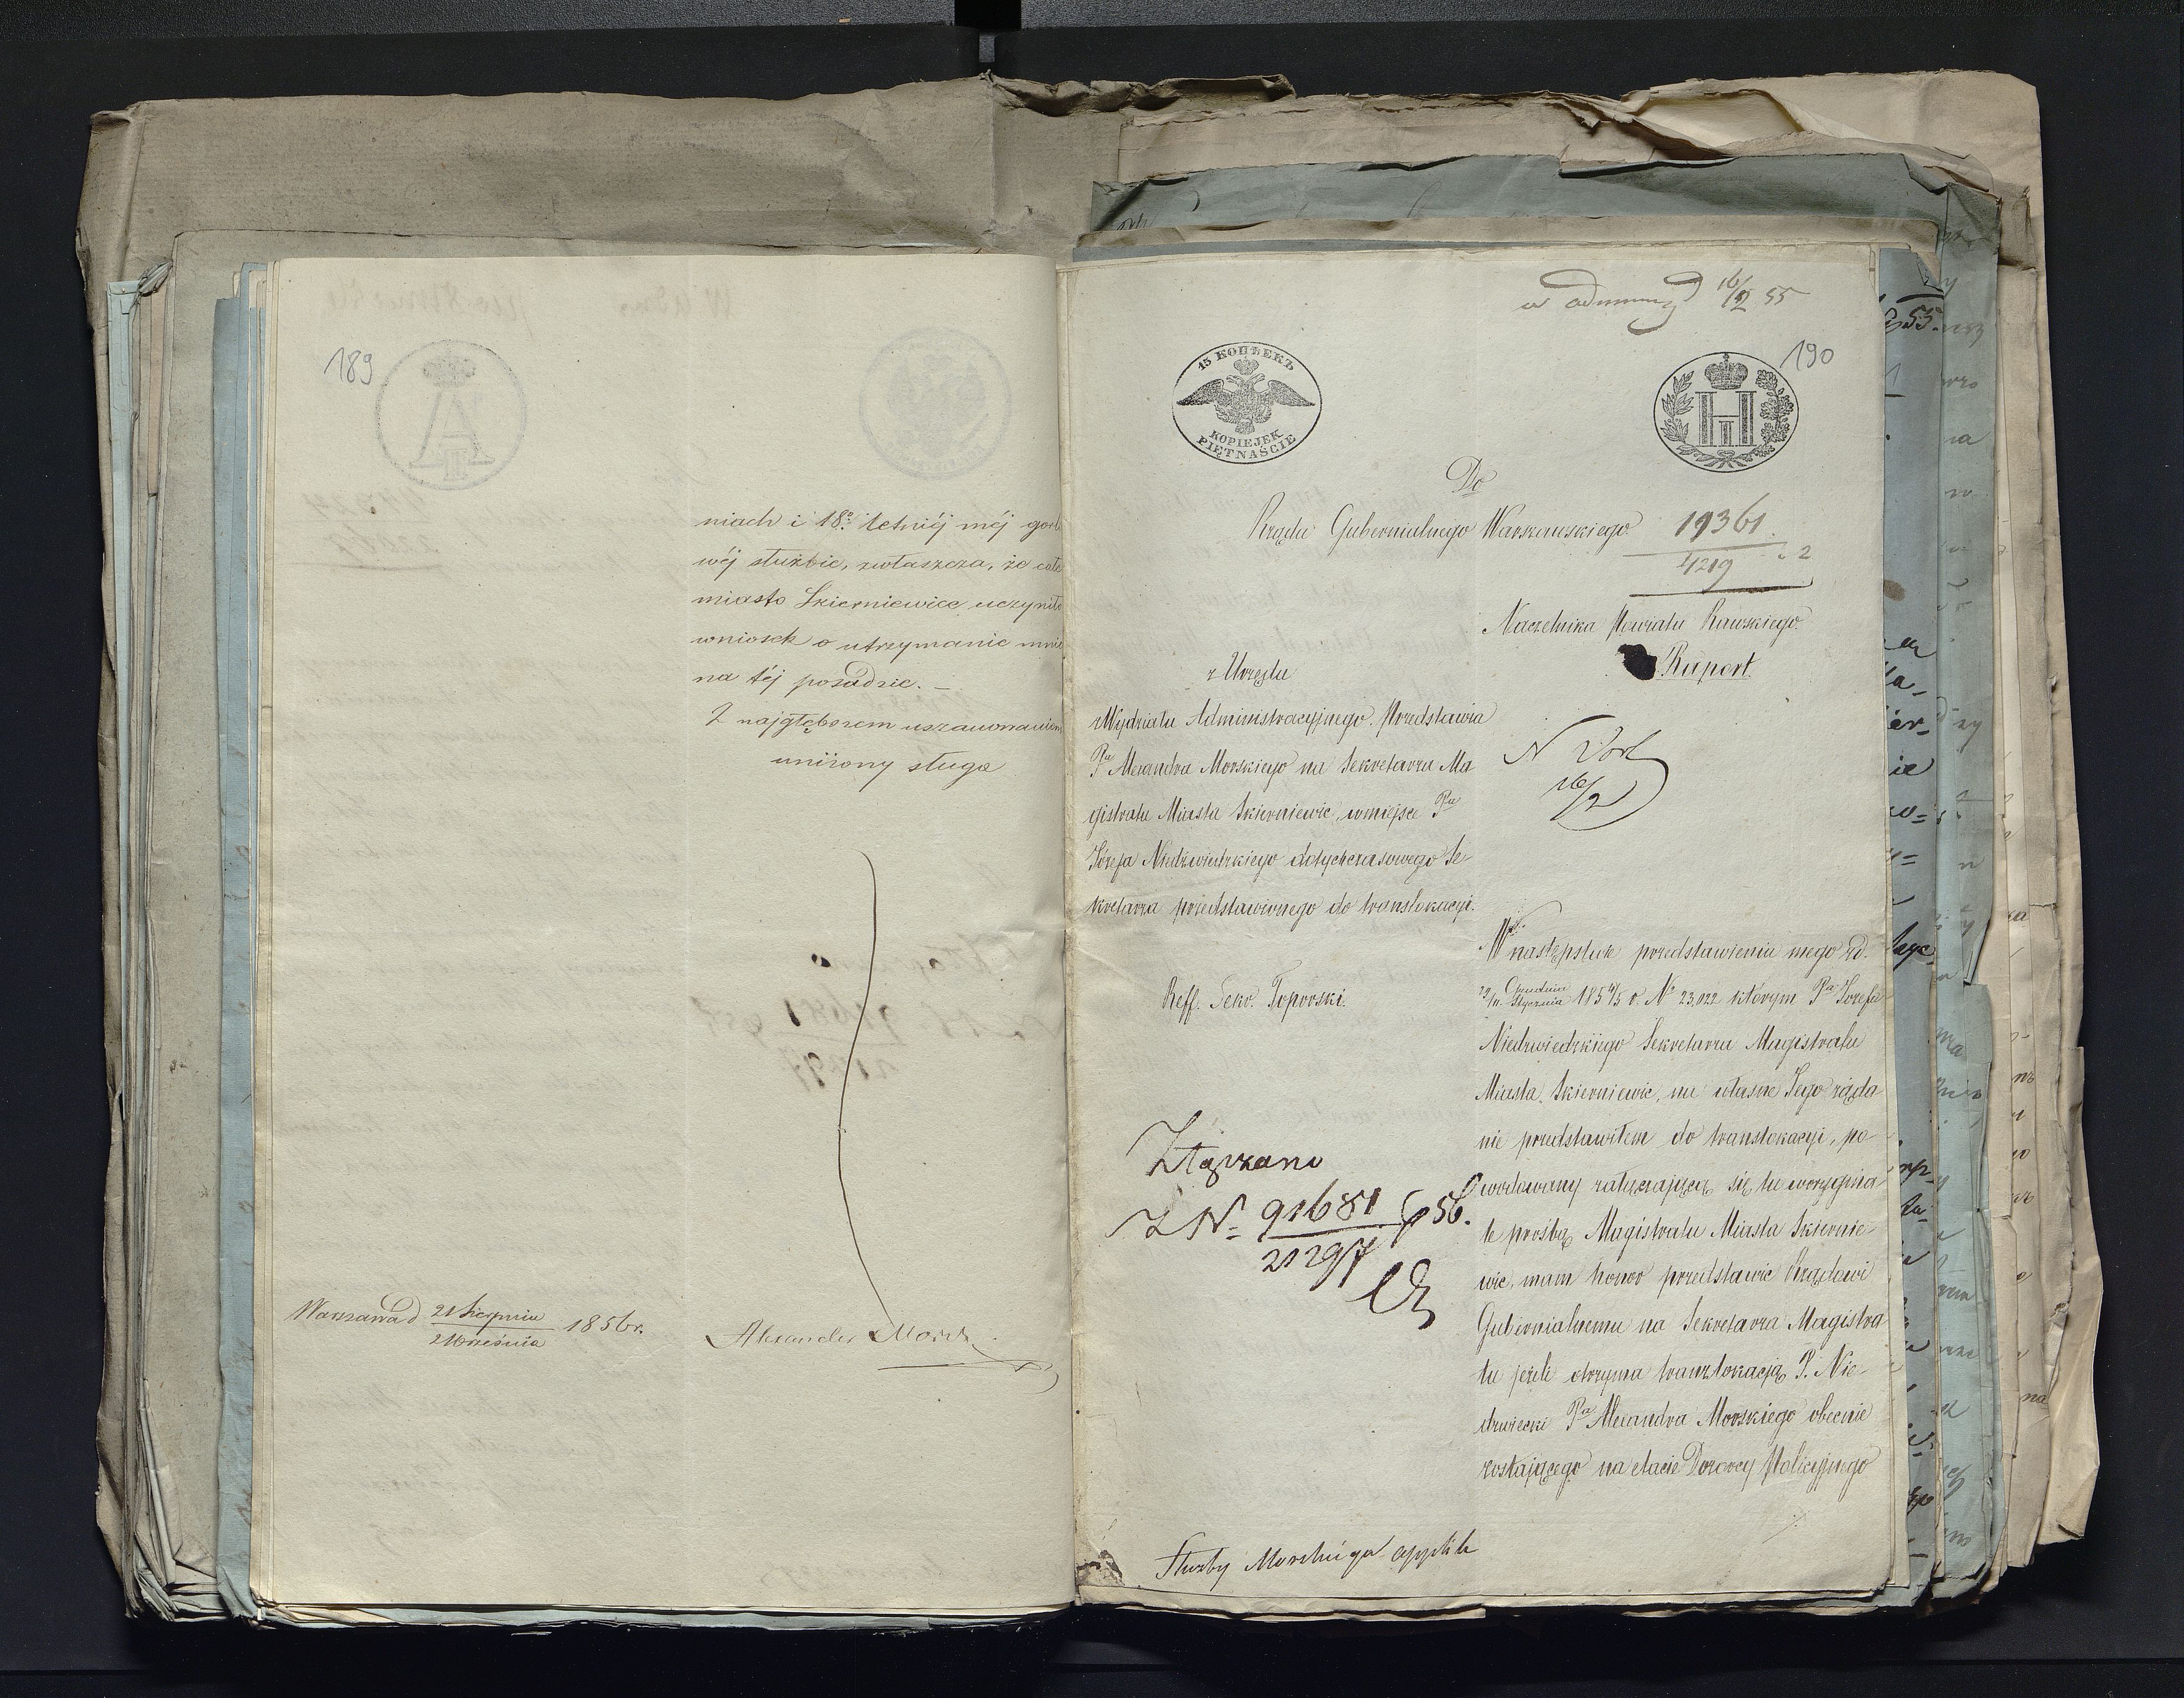 189
niach i 18o letniéj méj gorli
wéj służbie, zwłaszcza, że całe
miasto Skierniewice uczyniło
wniosek o utrzymanie mnie
na téj posadzie. –
Z najgłębszem uszanowaniem
uniżony sługa
Warszawa d 21 Sierpnia
2 Września 1856 r.
Alexander Morsk
16/2 55
190
15 КОПѢЕКЪ
KOPIEJEK
PIĘTNAŚCIE
H
II
Do
Rządu Gubernialnego Warszawskiego
19361
4219
Naczelnika Powiatu Rawskiego
Raport
z Urzędu
Wydziału Administracyjnego. Przedstawia
Pa Alexandra Morskiego na Sekretarza Ma
gistratu Miasta Skierniewic, w miejsce Pa
Józefa Niedzwiedzkiego dotychczasowego Se
kretarza przedstawionego do translokacyi.
N
16/2
Reff. Sekr. Toporski.
W następstwie przedstawienia mego z d.
Grudnia
Stycznia 1854/5 r. No 23,022 którym Pa Józefa
Niedzwiedzkiego Sekretarza Magistratu
Miasta Skierniewic, na własne Jego żąda
nie przedstawiłem do translokacyi, po
wodowany załączającą się tu w orygina
le prośbą Magistratu Miasta Skiernie
wic, mam honor przedstawić Rządowi
Gubernialnemu na Sekretarza Magistra
tu jeżeli otrzyma translokacją P. Nie
dzwiecki Pa Alexandra Morskiego obecnie
zostającego na etacie Dozorcy Policyjnego
Złączano
Z No 91681 56.
21297
Służby Morskiego